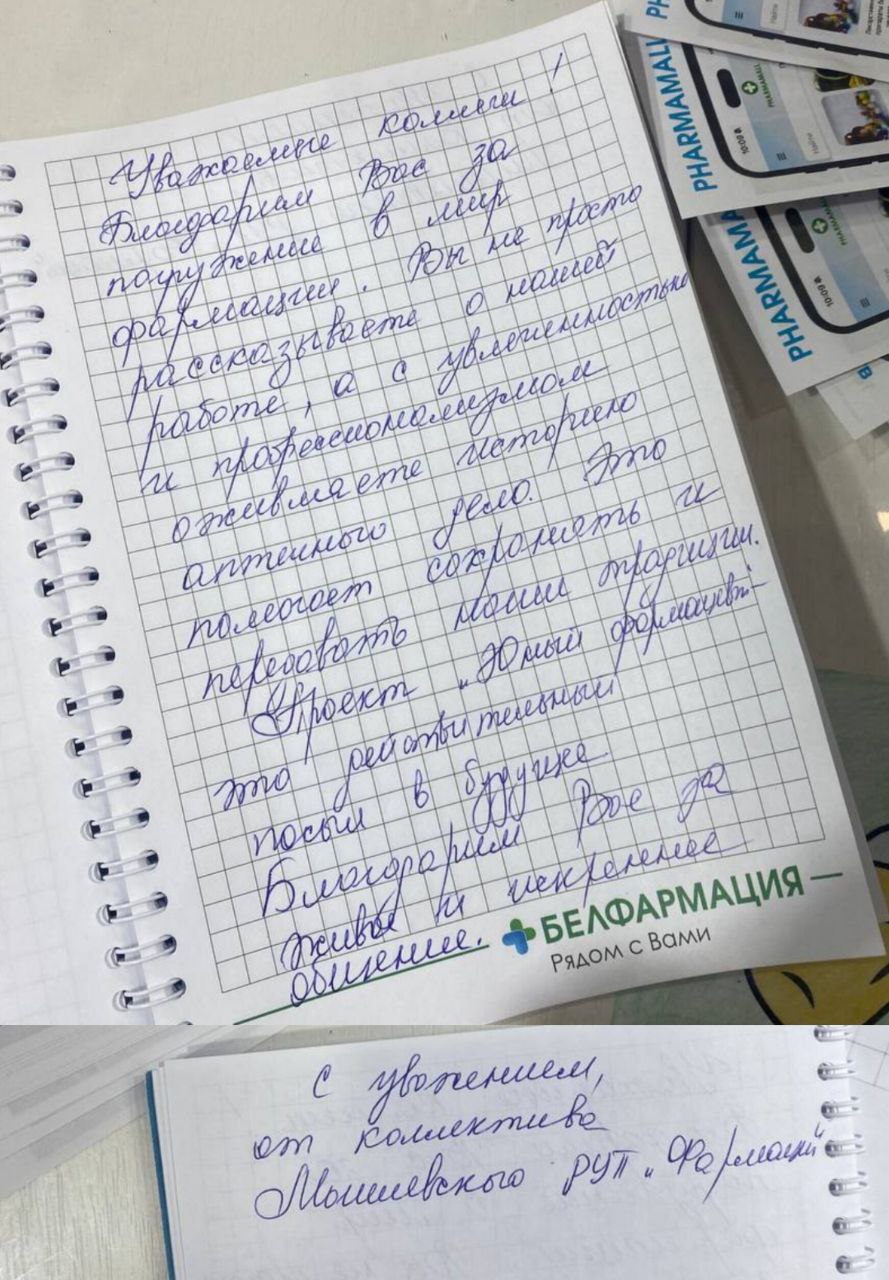 Уважаемые коллеги!
Благдарим Вас за
погружение в мир
фармации. Вы не просто
рассказываете о нашей
работе, а с увлеченностью
и профессионализмом
оживляете историю
аптечного дела. Это
помогает сохранять и
передавать наши традиции.
Проект „Юный фармацевт"-
это действительный
посыл в будущее
Благодарим Вас за
живое и искреннее
общение.
БЕЛФАРМАЦИЯ
Рядом с Вами
PHARMAMALL
10:09
PHARMAMALL
Найти
PHARMAMA
10:09
С уважением,
от коллектива
РУП „Фармация"